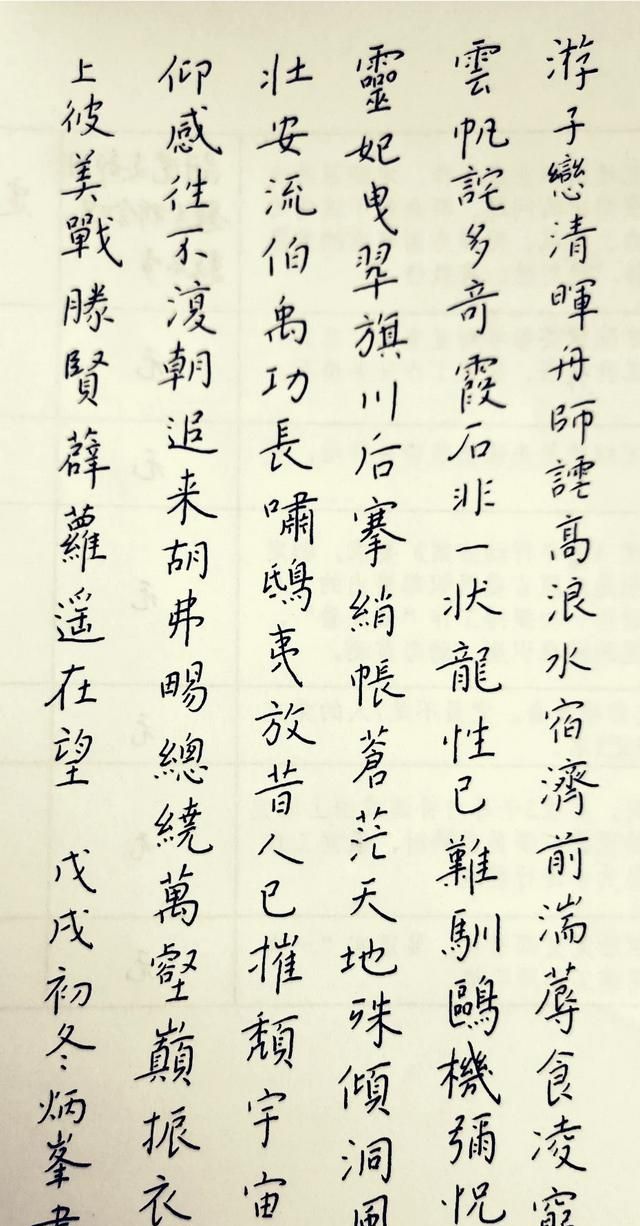 游子戀清暉舟師詫高浪水宿濟前湍蓐食凌窮
雲帆詫多奇霞石非一状龍性已難馴鷗機彌怳
靈妃曳翠旗川后搴綃帳蒼茫天地殊傾洞風
壯安流伯禹功長嘯鴟夷放昔人已摧頹宇宙
仰感徃不復朝追来胡弗暘總繞萬壑巔振衣
上彼美戰勝賢薜蘿遥在望 戊戌初冬炳峯書